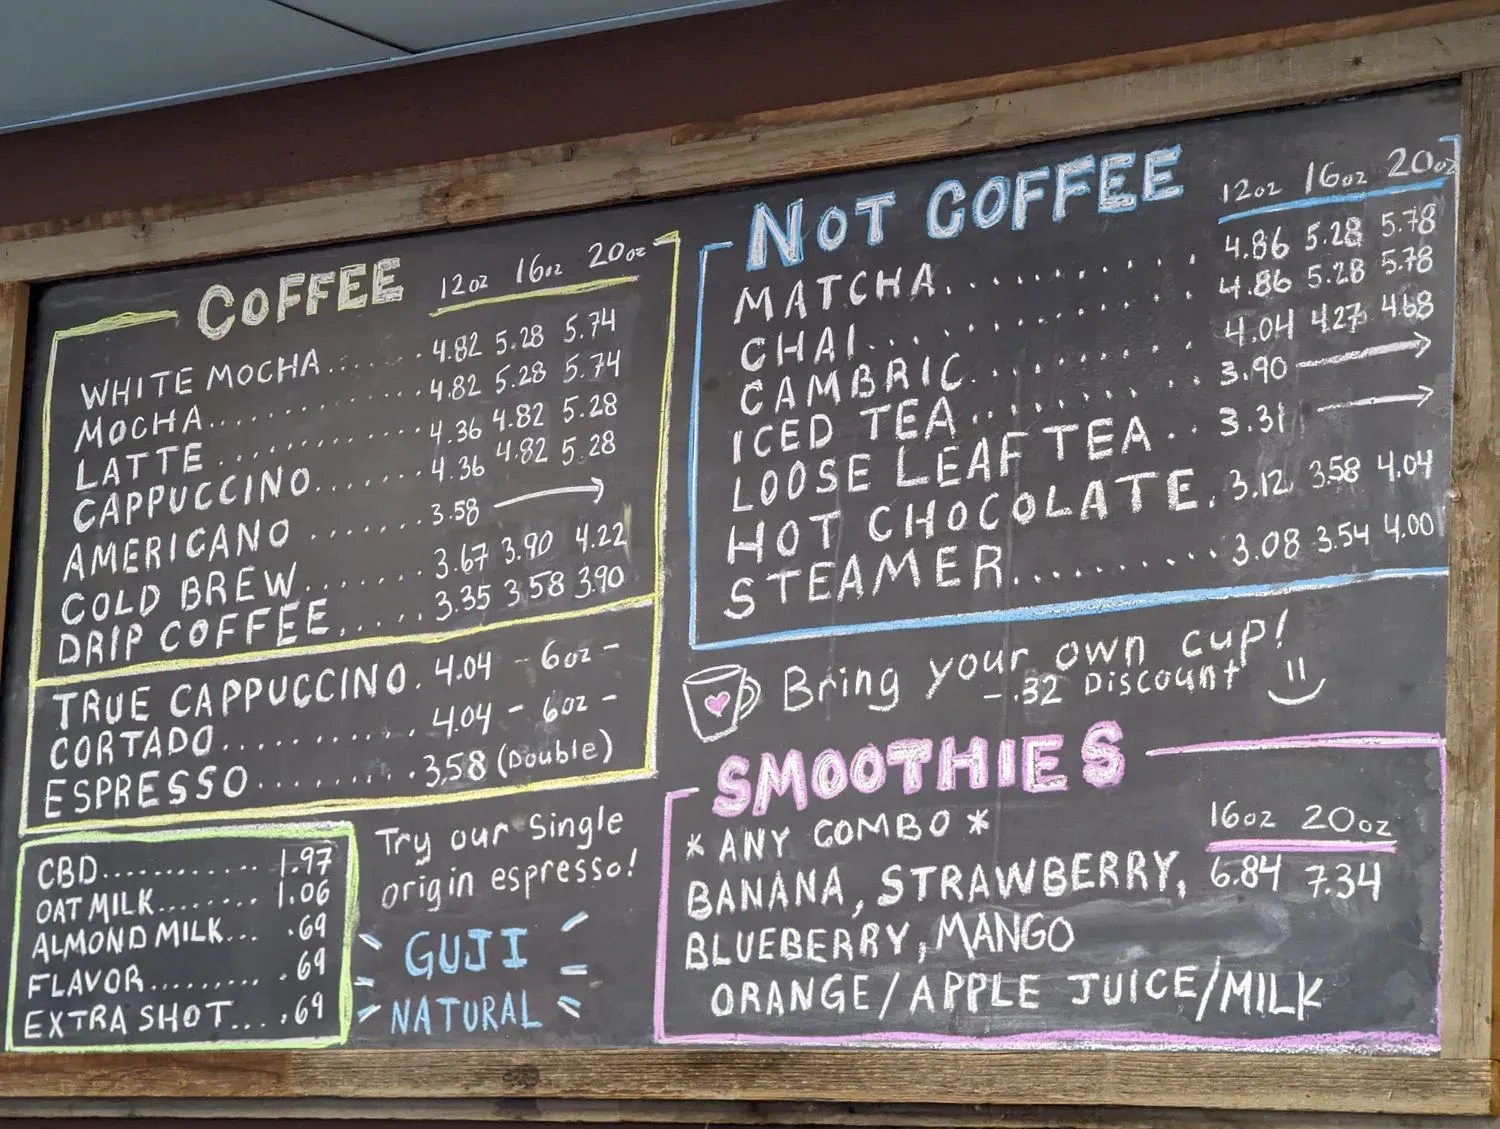 COFFEE 12oz 16oz 20oz
WHITE MOCHA...... 4.82 5.28 5.74
MOCHA............. 4.82 5.28 5.74
LATTE ............. 4.36 4.82 5.28
CAPPUCCINO....... 4.36 4.82 5.28
AMERICANO ....... 3.58 →
COLD BREW........ 3.67 3.90 4.22
DRIP COFFEE...... 3.35 3.58 3.90
TRUE CAPPUCCINO. 4.04 - 6oz -
CORTADO........... 4.04 - 6oz -
ESPRESSO......... 3.58 (Double)
CBD............ 1.97
OAT MILK........ 1.06
ALMOND MILK... .69
FLAVOR......... .69
EXTRA SHOT... .69
Try our Single
origin espresso!
GUJI
NATURAL
NOT COFFEE 12oz 16oz 20oz
MATCHA.......... 4.86 5.28 5.78
CHAI............. 4.86 5.28 5.78
CAMBRIC......... 4.04 4.27 4.68
ICED TEA......... 3.90 →
LOOSE LEAF TEA.. 3.31 →
HOT CHOCOLATE. 3.12 3.58 4.04
STEAMER.......... 3.08 3.54 4.00
Bring your own cup!
- .32 Discount
SMOOTHIES
*ANY COMBO* 16oz 20oz
BANANA, STRAWBERRY, 6.84 7.34
BLUEBERRY, MANGO
ORANGE/APPLE JUICE/MILK